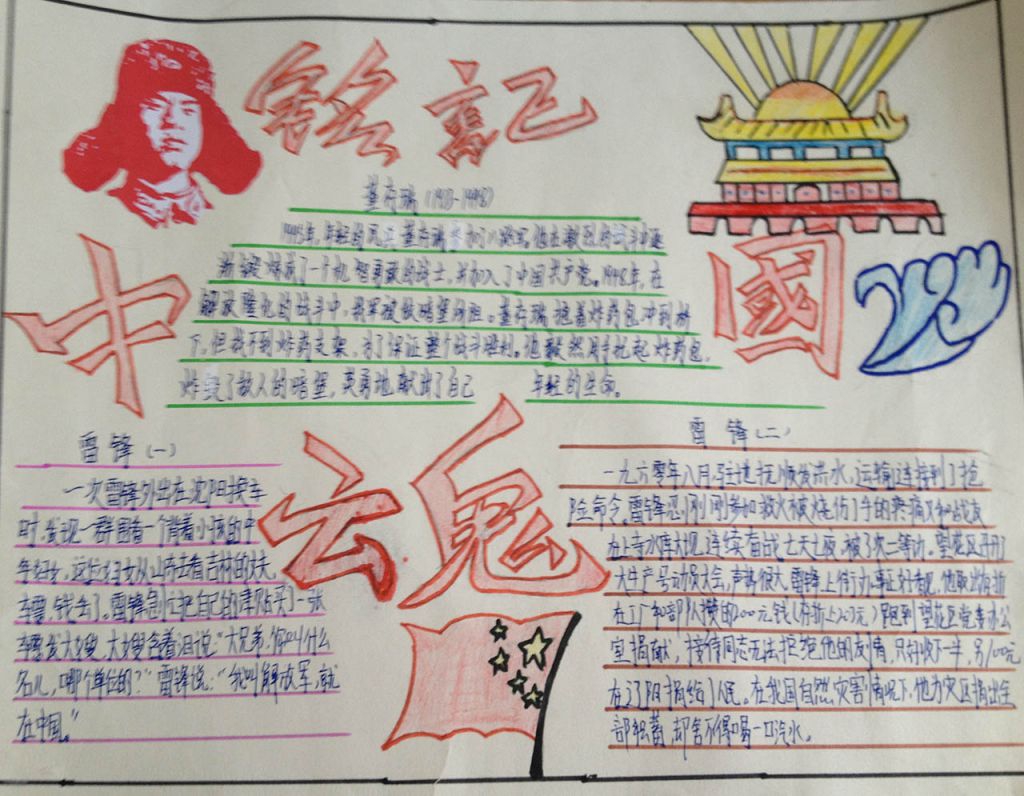 铭記
中國
云鬼
董存瑞(1929-1948)
1945年,年轻的民兵董存瑞参加了八路军,他在激烈的战斗中逐
渐锻炼成了一个机智勇敢的战士,并加入了中国共产党。1948年,在
解放隆化的战斗中,我军被敌暗堡所阻。董存瑞抱着炸药包冲到桥
下,但找不到炸药支架,为了保证整个战斗胜利。他毅然用手托起炸药包,
炸毁了敌人的暗堡,英勇地献出了自己 年轻的生命。
雷锋(一)
一次雷锋外出在沈阳换车
时,发现一群围着一个背着小孩的中
年妇女,这位妇女从山东去看吉林的丈夫,
车票,钱丢了。雷锋急忙把自己的津贴买了一张
车票给大嫂,大嫂含着泪说:“大兄弟,你叫什么
名儿,哪个单位的?”雷锋说:“我叫解放军,就
在中国。”
雷锋(二)
一九六零年八月,驻地抚顺发洪水,运输连接到了抢
险命令。雷锋忍刚刚参加救火被烧伤了手的疼痛又和战友
在上寺水库大坝连续奋战七天七夜,被了次二等功。望花区开了
大生产号动员大会,声势很大,雷锋上街办事正好看见,他取出存折
在工厂和部队攒的200元钱(存折上203元)跑到望花区党委办公
室捐献,接待同志无法拒绝他的友情,只好收下一半,另100元
在辽阳捐给了人民。在我国自然灾害情况下,他为灾区捐出全
部积蓄,却舍不得喝一口汽水。